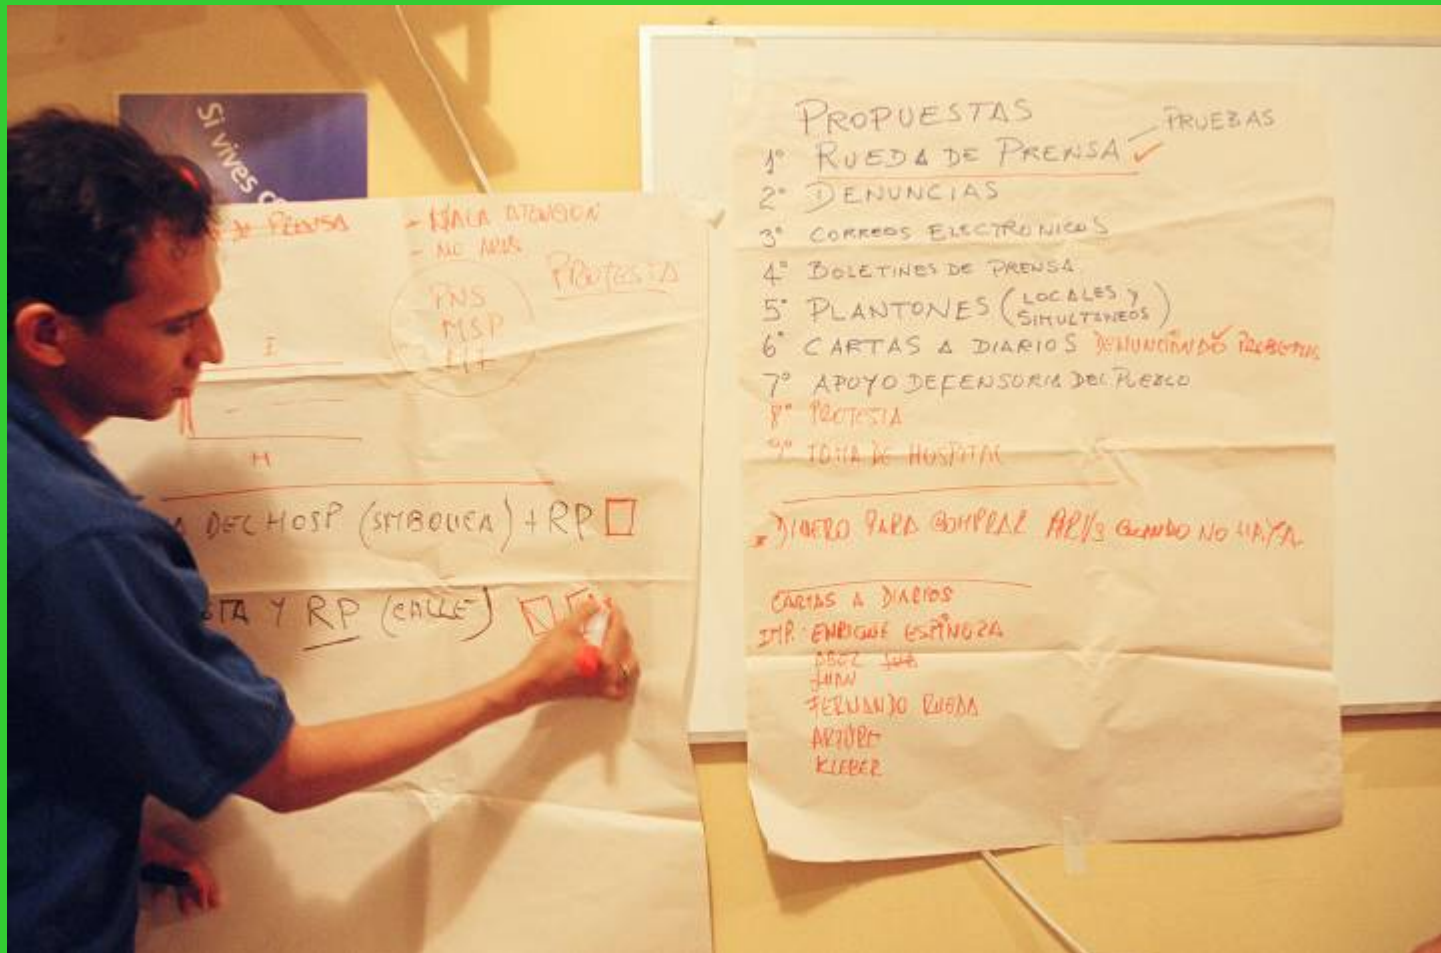 Si vives
DE PRENSA
- MALA ATENCION
- NO
PROTESTA
PNS
MSP
I
H
DEL HOSP (SIMBOLICA) + RP
STA Y RP (CALLE)
PROPUESTAS
PRUEBAS
1° RUEDA DE PRENSA ✓
2° DENUNCIAS
3° CORREOS ELECTRONICOS
4° BOLETINES DE PRENSA
5° PLANTONES (LOCALES Y
SIMULTANEOS)
6° CARTAS A DIARIOS DENUNCIANDO PROBLEMAS
7° APOYO DEFENSORIA DEL PUEBLO
8° PROTESTA
9° TOMA DE HOSPITAL
DINERO PARA COMPRAR ARVs CUANDO NO HAYA
CARTAS A DIARIOS
IMP. ENRIQUE ESPINOZA
JUAN
FERNANDO RUEDA
ARTURO
KLEBER